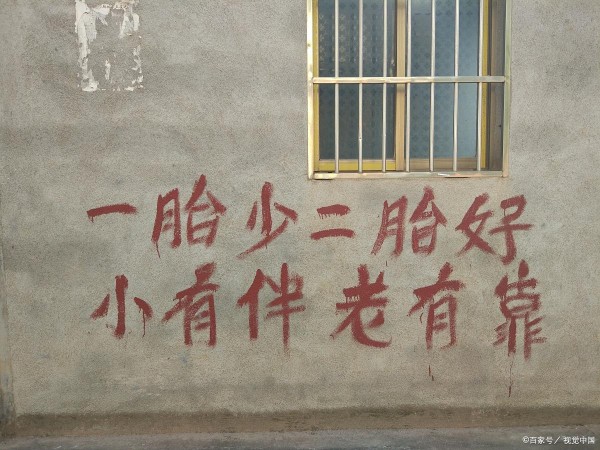 一胎少二胎好
小有伴老有靠
©百家号／视觉中国